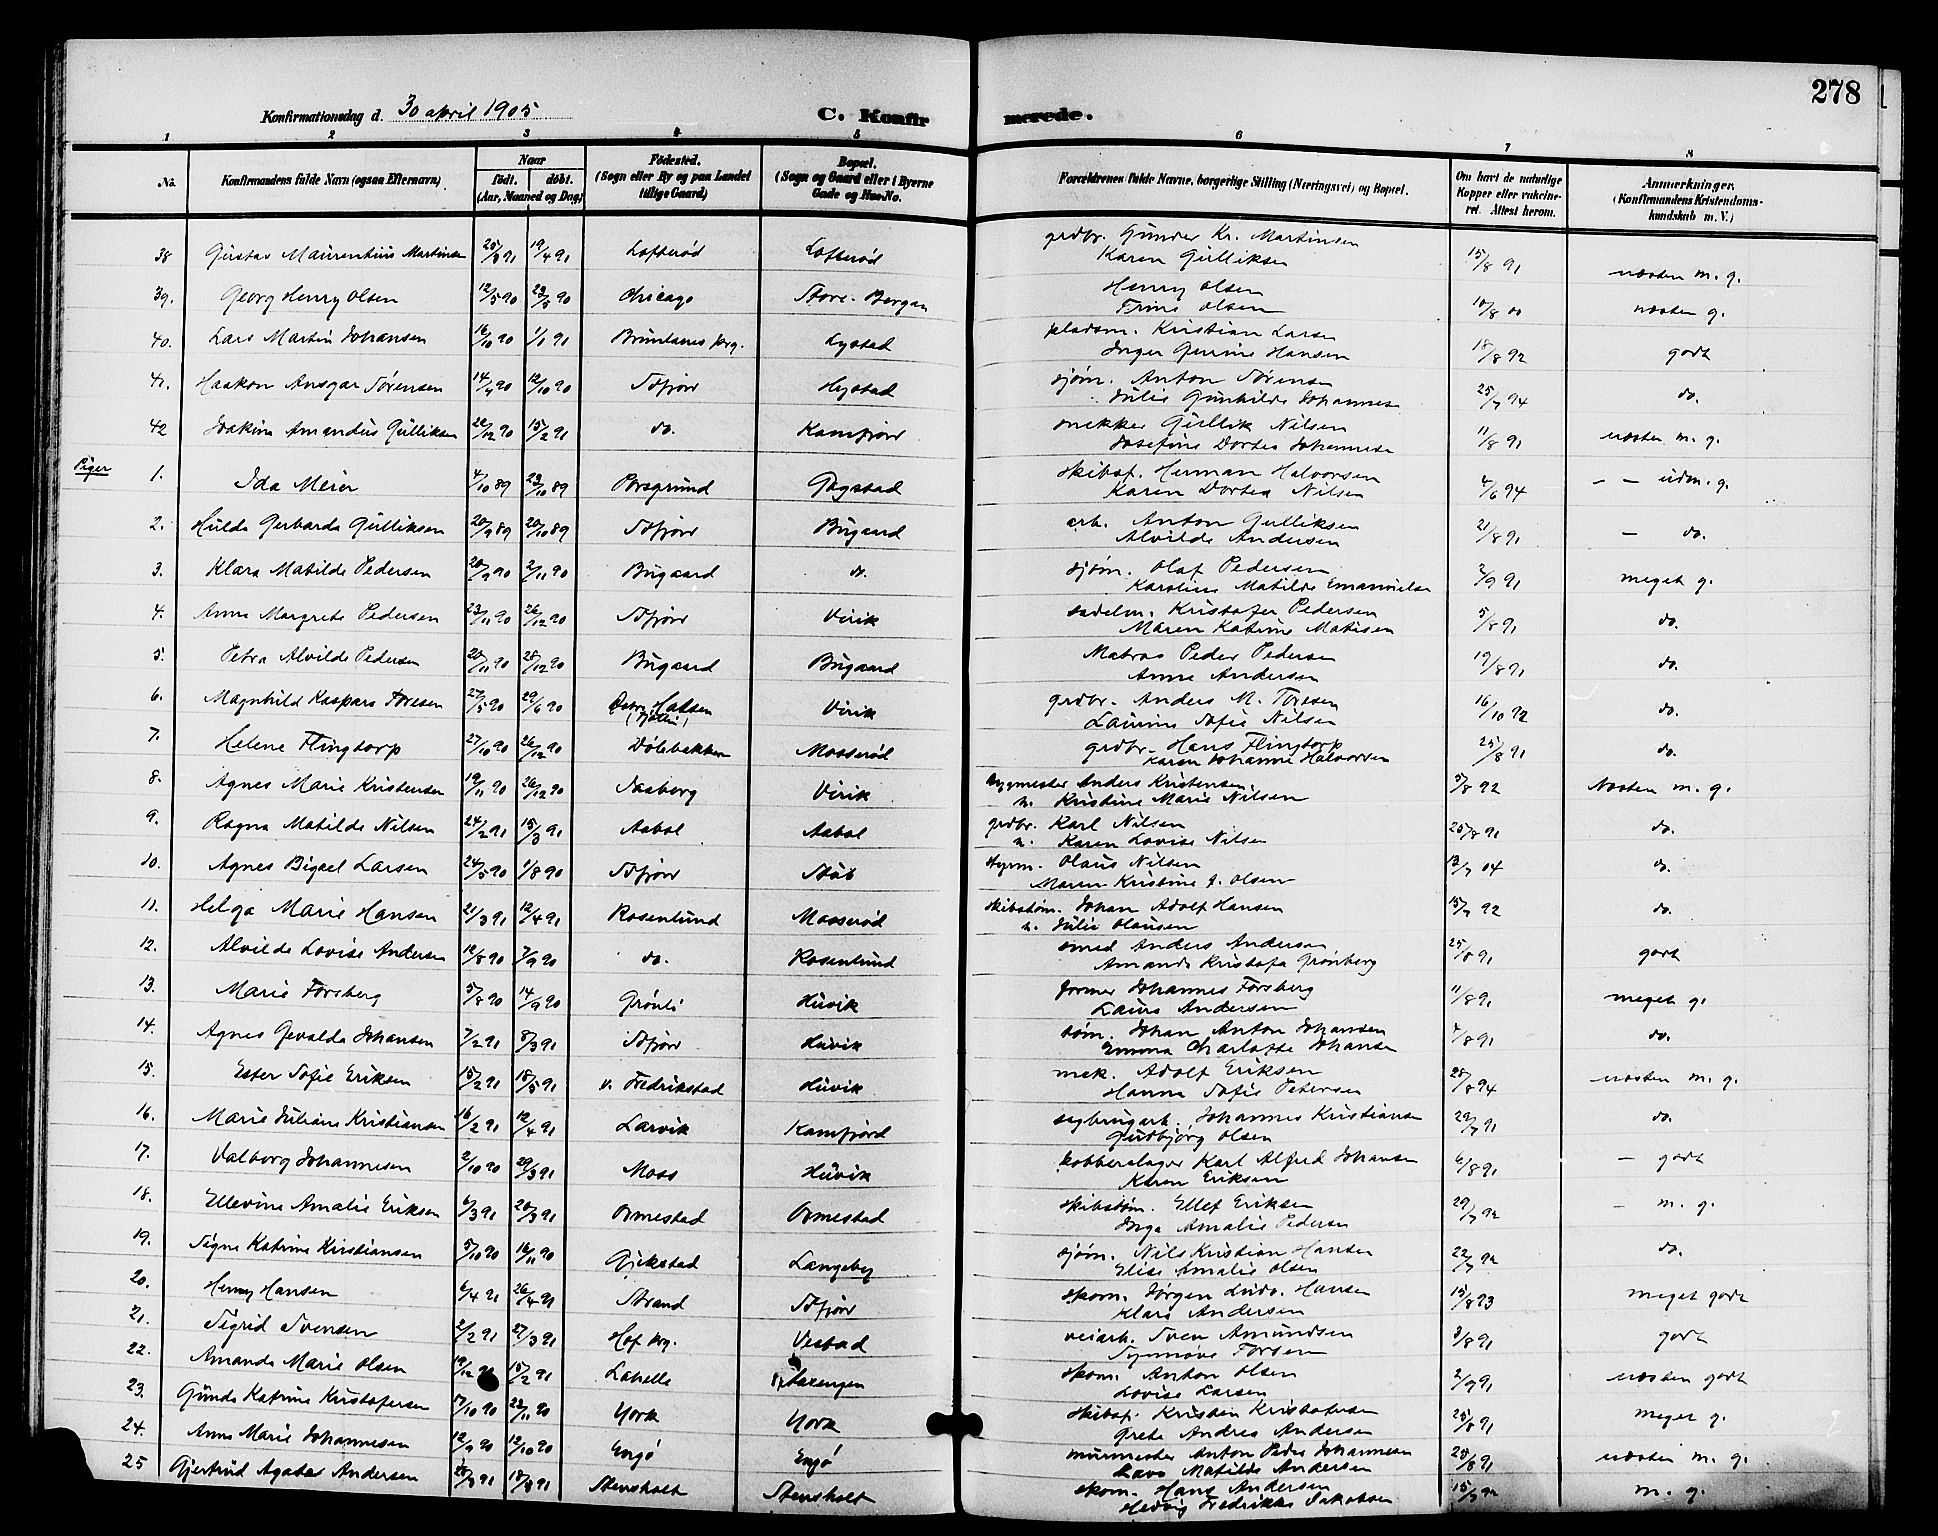 278
Konfirmationsdag d. 30 april 1905 C. Konfirmerede.
1 2 3 4 5 6 7 8
No. Konfirmandens fulde Navn (ogsaa Efternavn) Naar født. døbt. (Aar, Maaned og Dag) Fødested. (Sogn eller By og paa Landet tillige Gaard) Bopæl. (Sogn og Gaard eller i Byerne Gade og Hus-No. Forældrenes fulde Navne, borgerlige Stilling (Næringsvei) og Bopæl. Om havt de naturlige Kopper eller vakcineret. Attest herom. Anmærkninger. (Konfirmandens Kristendomskundskab m. V.)
38 Gustav Maurentius Martinsen 25/3 91 19/4 91 Lofterød Lofterød grdbr. Gunder Kr. Martinsen
Karen Gulliksen 15/8 91 næsten m. g.
39. Georg Henry Olsen 12/5 90 Chicago Store-Bergan Henry Olsen
Trine Olsen 10/8 00 næsten g.
40. Lars Martin Johansen 16/10 90 1/1 91 Brunlanes prg. Lystad pladsm. Kristian Larsen
Inger Gurine Hansen 18/8 92 godt
41. Haakon Ansgar Sørensen 14/9 90 12/10 90 Sdfjord Hystad sjøm. Anton Sørensen
Julie Gunhilde Johannesen 25/7 94 do.
42 Joakim Amandus Gulliksen 15/2 91 do. Kamfjord snekker Gullik Nilsen
Josefine Dortea Johannesen 11/8 91 næsten m. g.
Piger
1. Ida Meier 4/10 89 23/10 89 Porsgrund Gogstad skibsf. Herman Halvorsen
Karen Dortea Nilsen 4/6 94 — — udm. g.
2. Hulda Gerharda Gulliksen 20/9 89 20/10 89 Sdfjord Bugaard arb. Anton Gulliksen
Alvilde Andersen 21/8 91 — do.
3. Klara Matilde Pedersen 20/9 90 2/11 90 Bugaard do. sjøm. Olaf Pedersen
Karoline Matilde Emanuelsen 3/9 91 meget g.
4. Anna Margrete Pedersen 23/11 90 26/12 90 Sdfjord Virik sadelm. Kristofer Pedersen
Maren Katrine Matisen 5/8 91 do.
5. Petra Alvilde Pedersen 20/11 90 28/12 90 Bugaard Bugaard Matros Peder Pedersen
Anne Andersen 19/8 91 do.
6. Magnhild Kaspara Toresen 27/5 90 29/6 90 Virik grdbr. Anders M. Toresen
Laurine Sofie Nilsen 16/10 92 do.
7. Helene Flingtorp 27/10 90 26/12 90 Dølebakken Mosserød grdbr. Hans Flingtorp
Karen Johanne Halvorsen 25/8 91 do.
8. Agnes Marie Kristensen 19/11 90 26/12 90 Saaborg Virik bygmester Anders Kristensen
h. Kristine Marie Nilsen 5/8 92 Næsten m. g.
9. Ragna Matilde Nilsen 24/2 91 15/3 91 Aabol Aabol grdbr. Karl Nilsen
h. Karen Lovise Nilsen 25/8 91 do.
10. Agnes Bigael Larsen 24/5 90 1/8 90 Sdfjord Stub styrm. Olaus Nilsen
Maren Kristine J. Olsen 13/7 04 do.
11. Helga Marie Hansen 21/3 91 12/4 91 Rosenlund Mosserød skibstøm. Johan Adolf Hansen
h. Julie Olausen 15/7 92 do.
12. Alvilde Lovise Andersen 12/8 90 7/9 90 do. Rosenlund smed Anders Andersen
Amanda Kristofa Grønberg 25/8 91 godt
13. Marie Forsberg 5/8 90 14/9 90 Grønli Huvik former Johannes Forsberg
Laura Andersen 11/8 91 meget g.
14. Agnes Gevalda Johansen 7/2 91 8/3 91 Sdfjord Huvik tøm. Johan Anton Johansen
Emma Charlotte Johansen 4/8 91 do.
15. Ester Sofie Eriksen 15/2 91 18/5 91 v. Fredrikstad Huvik mek. Adolf Eriksen
Hanna Sofie Petersen 28/8 94 næsten m. g.
16. Marie Juliane Kristiansen 16/2 91 12/4 91 Larvik Kamfjord sagbrugarb. Johannes Kristiansen
Gudbjørg Olsen 29/7 91 do.
17. Valborg Johannesen 2/10 90 29/3 91 Moss Huvik kobberslager Karl Alfred Johansen
Karen Eriksen 6/8 91 — godt
18. Ellevine Amalie Eriksen 6/3 91 20/3 91 Ormestad Ormestad skibstøm. Ellef Eriksen
Inga Amalie Pedersen 29/7 92 — m. g.
19. Signe Katrine Kristiansen 5/10 90 16/11 90 Gjekstad Langeby sjøm. Nils Kristian Hansen
Elise Amalie Olsen 22/7 92 do.
20. Henny Hansen 6/4 91 26/4 91 Strand Sdfjord skom. Jørgen Ludv. Hansen
Klara Andersen 15/8 93 meget godt
21. Sigrid Svensen 2/2 91 27/3 91 Hof prg. Vestad veiarb. Sven Amundsen
Synnøve Torsen 3/8 91 godt
22. Amanda Marie Olsen 15/2 91 Lahelle skom. Anton Olsen
Lovise Larsen 2/9 91 næsten godt
23. Gunda Katrine Kristofersen 17/10 90 23/11 90 York York skibsf. Kristen Kristofersen
Grete Andrea Andersen 25/8 91 meget g.
24. Anna Marie Johannesen 12/9 90 12/10 90 Engø Engø murmester Anton Peder Johannesen
Lava Matilde Andersen 25/8 91 næsten m. g.
25 Gjertrud Agate Andersen 18/3 91 Stensholt Stensholt skom. Hans Andersen
Hedvig Fredrikke Jakobsen 15/7 92 m. g.